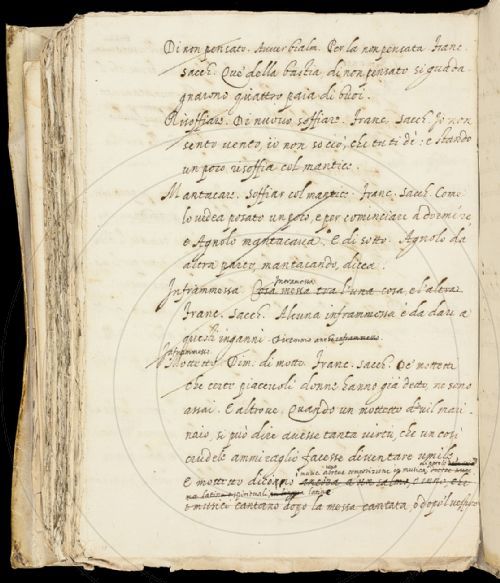 Di non pensato. Avverbialm. Per la non pensata. Franc.
Sacch. Que' della bastia di non pensato si guada-
gnarono quattro paia di buoi.
Risoffiare. Di nuovo soffiare. Franc. Sacch. Io non
sento vento, io non so ciò, che tu ti dè: e stando
un poco risoffia col mantico.
Mantacare. Soffiar col mantico. Franc. Sacch. Come
lo vedea posato un poco, e per cominciare a dormire
e Agnolo mantacava. E di sotto. Agnolo da
altra parte mantacando, dicea.
Inframmessa
Inframmessa Cosa messa tra l'una cosa e l'altra
Franc. Sacch. Alcuna inframmessa è da dare a
questi inganni. Diciamo anche inframmesso.
inframmesso
Mottetto. Dim. di motto. Franc. Sacch. De' mottetti
che certe piacevoli donne hanno già detto, ne sono
assai. E altrove. Quando un mottetto d'un mari-
naio, si può dire avesse tanta virtù, che un così
crudele ammiraglio facesse diventare umile.
E mottetto diciamo ancora a un salmo, o inno, che
in musica cantano dopo la messa cantata, o dopo il vespro